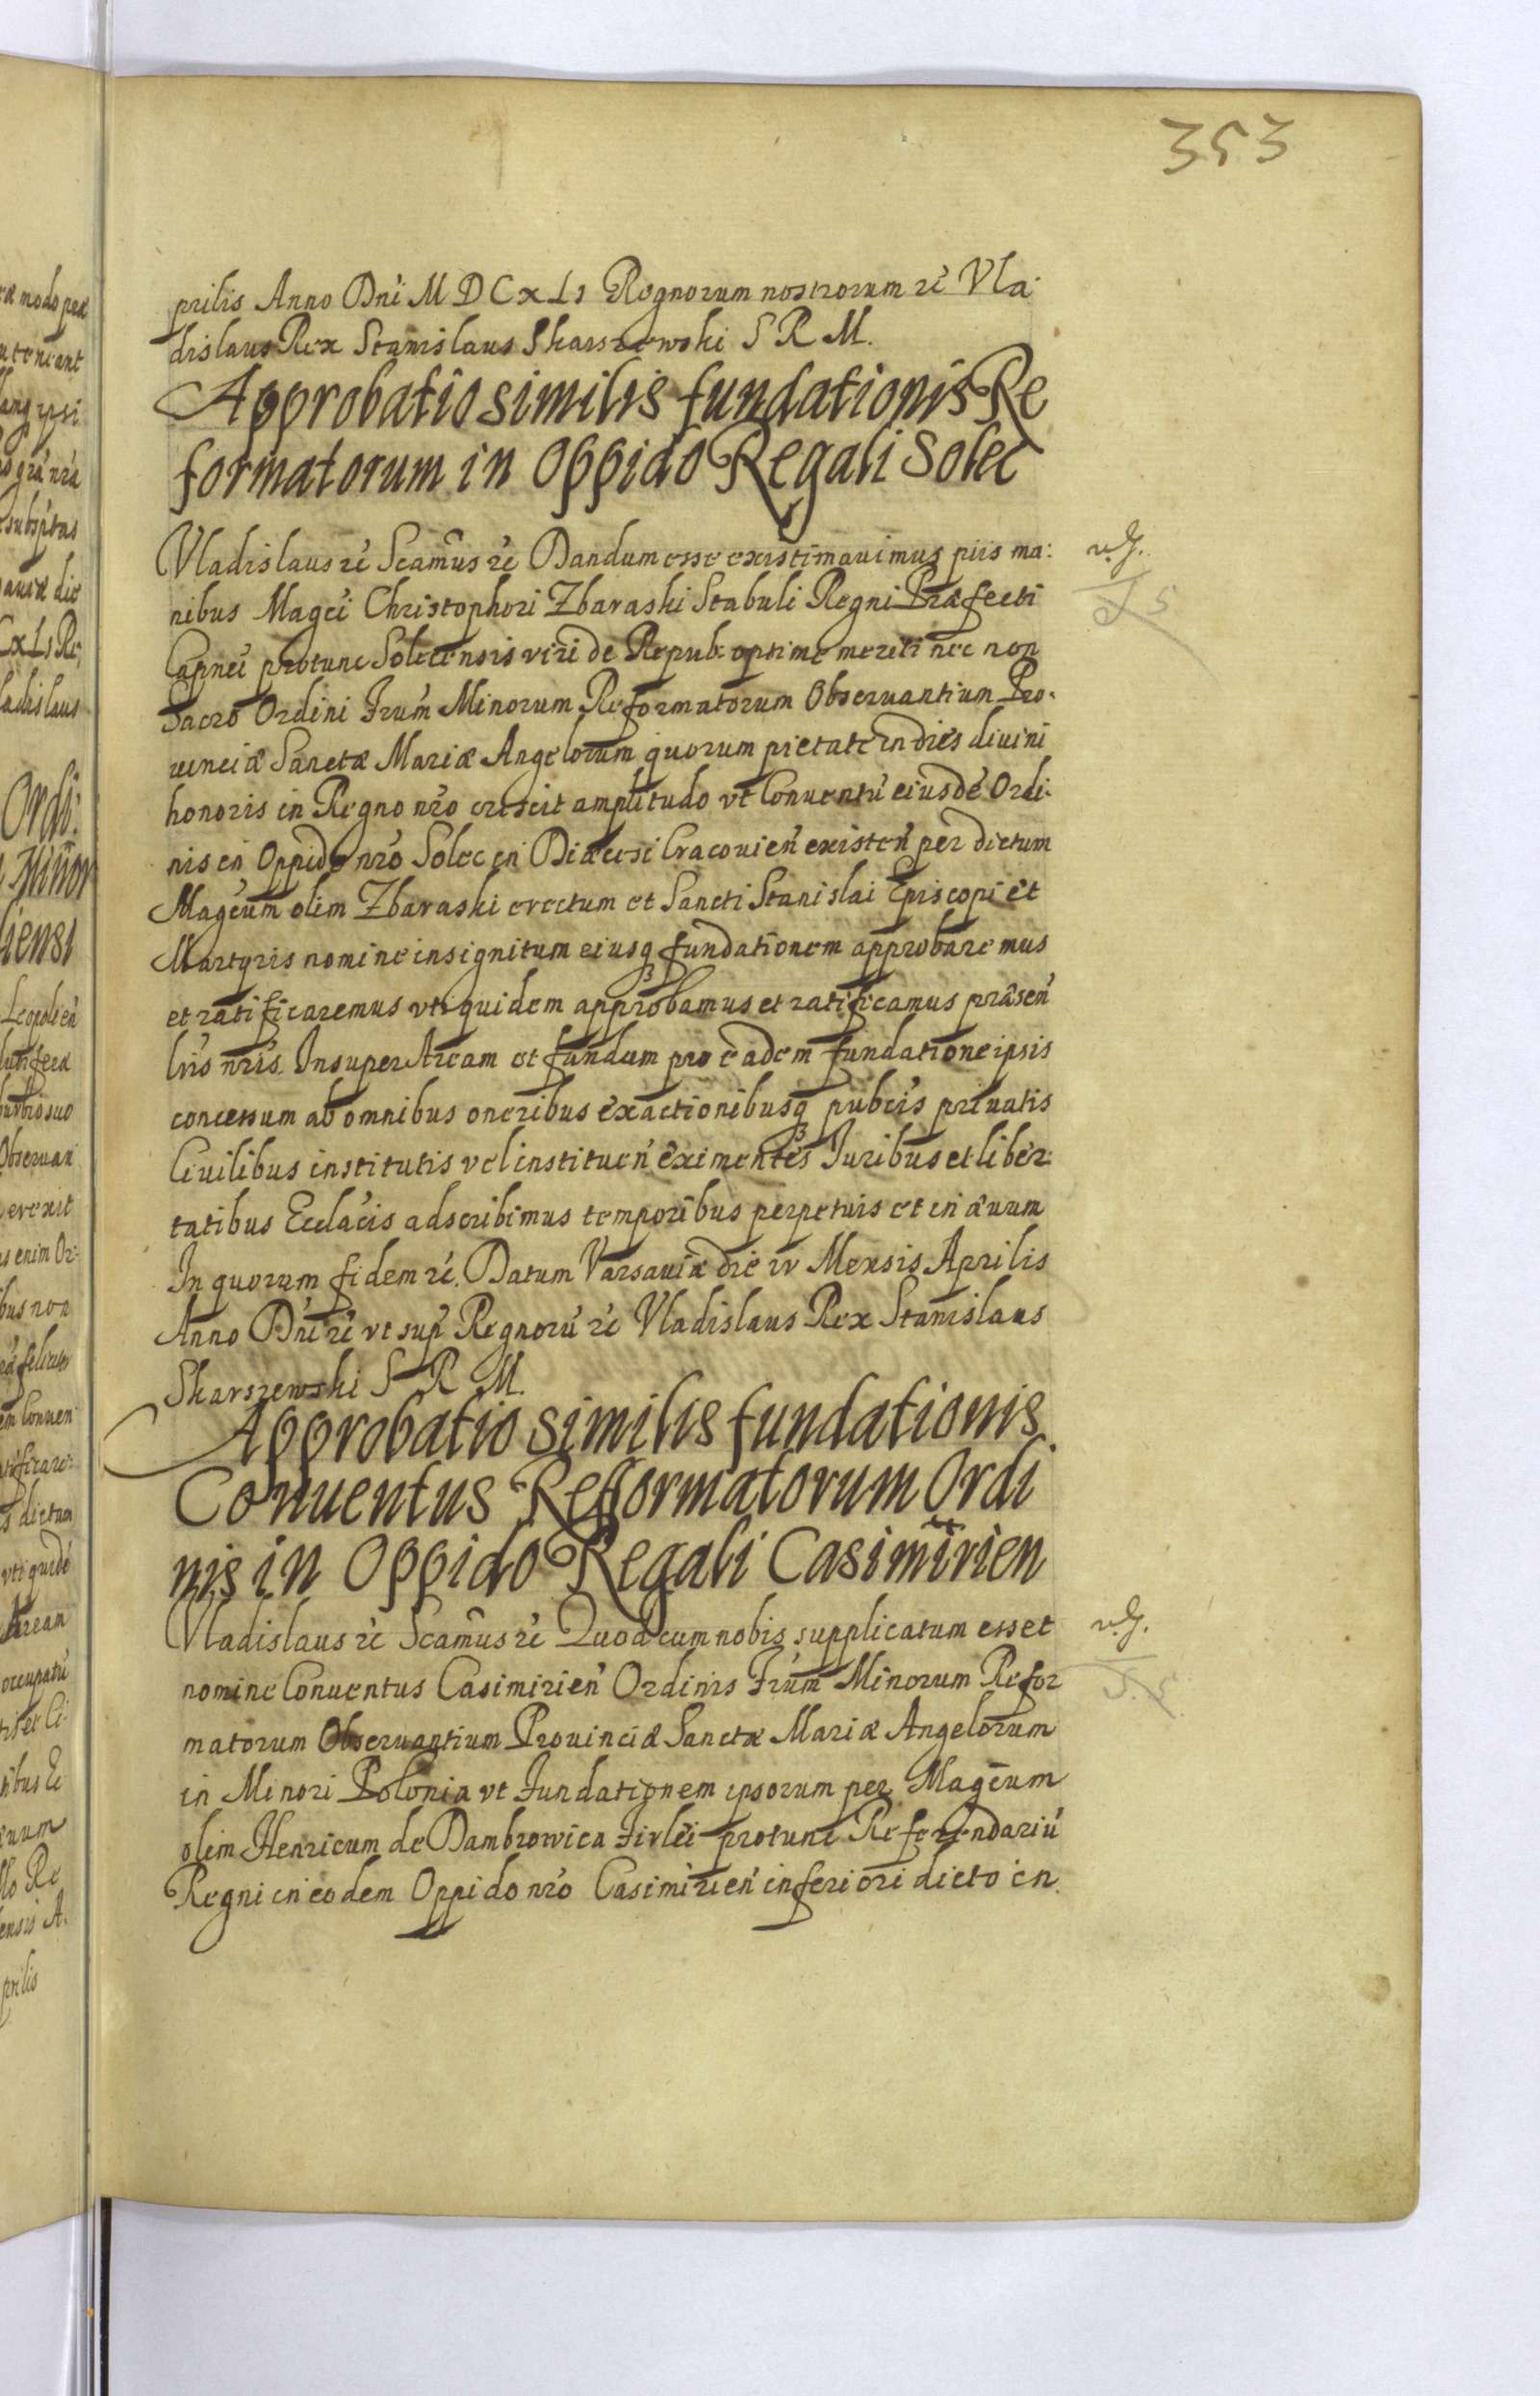 353
prilis Anno Dni M D C x L1 Regnorum nostrorum &c Vla:
dislaus Rex Stanislaus Skarszewski S R M.
Approbatio similis fundationis Re
formatorum in Oppido Regali Solec
Vladislaus &c Scamus &c Dandum esse existimauimus piis ma:
nibus Magci Christophori Zbaraski Stabuli Regni Præfecti
Capnei protunc Solecensis viri de Repub: optime meriti nec non
Sacro Ordini Frum Minorum Reformatorum Obseruantium Pro:
uinciæ Sanctæ Mariæ Angelorum quorum pietate in dies diuini
honoris in Regno nro crescit amplitudo vt Conuentu eiusde Ordi:
nis in Oppido nro Solec in Diæcesi Cracouien existen per dictum
Magcum olim Zbaraski erectum et Sancti Stanislai Episcopi et
Martyris nomine insignitum eiusq3 fundationem approbaremus
et ratificaremus vti quidem approbamus et ratificamus præsen
lris nris. Insuper Aream et fundum pro eadem fundatione ipsis
concessum ab omnibus oneribus exactionibusq3 pubcis priuatis
Ciuilibus institutis vel instituen eximentes Iuribus et liber:
tatibus Ecclacis adscribimus temporibus perpetuis et in æuum
In quorum fidem &c. Datum Varsauiæ die iv Mensis Aprilis
Anno Dni &c vt sup Regnoru &c Vladislaus Rex Stanislaus
Skarszewski S R M.
Approbatio similis fundationis
Conuentus Reformatorum Ordi
nis in Oppido Regali Casimirien
Vladislaus &c Scamus &c Quod cum nobis supplicatum esset
nomine Conuentus Casimirien Ordinis Frum Minorum Refor
matorum Obseruantium Prouinciæ Sanctæ Mariæ Angelorum
in Minori Polonia vt Fundationem ipsorum per Magcum
olim Henricum de Dambrowica Firlei protunc Referendariu
Regni in eodem Oppido nro Casimirien inferiori dicto in